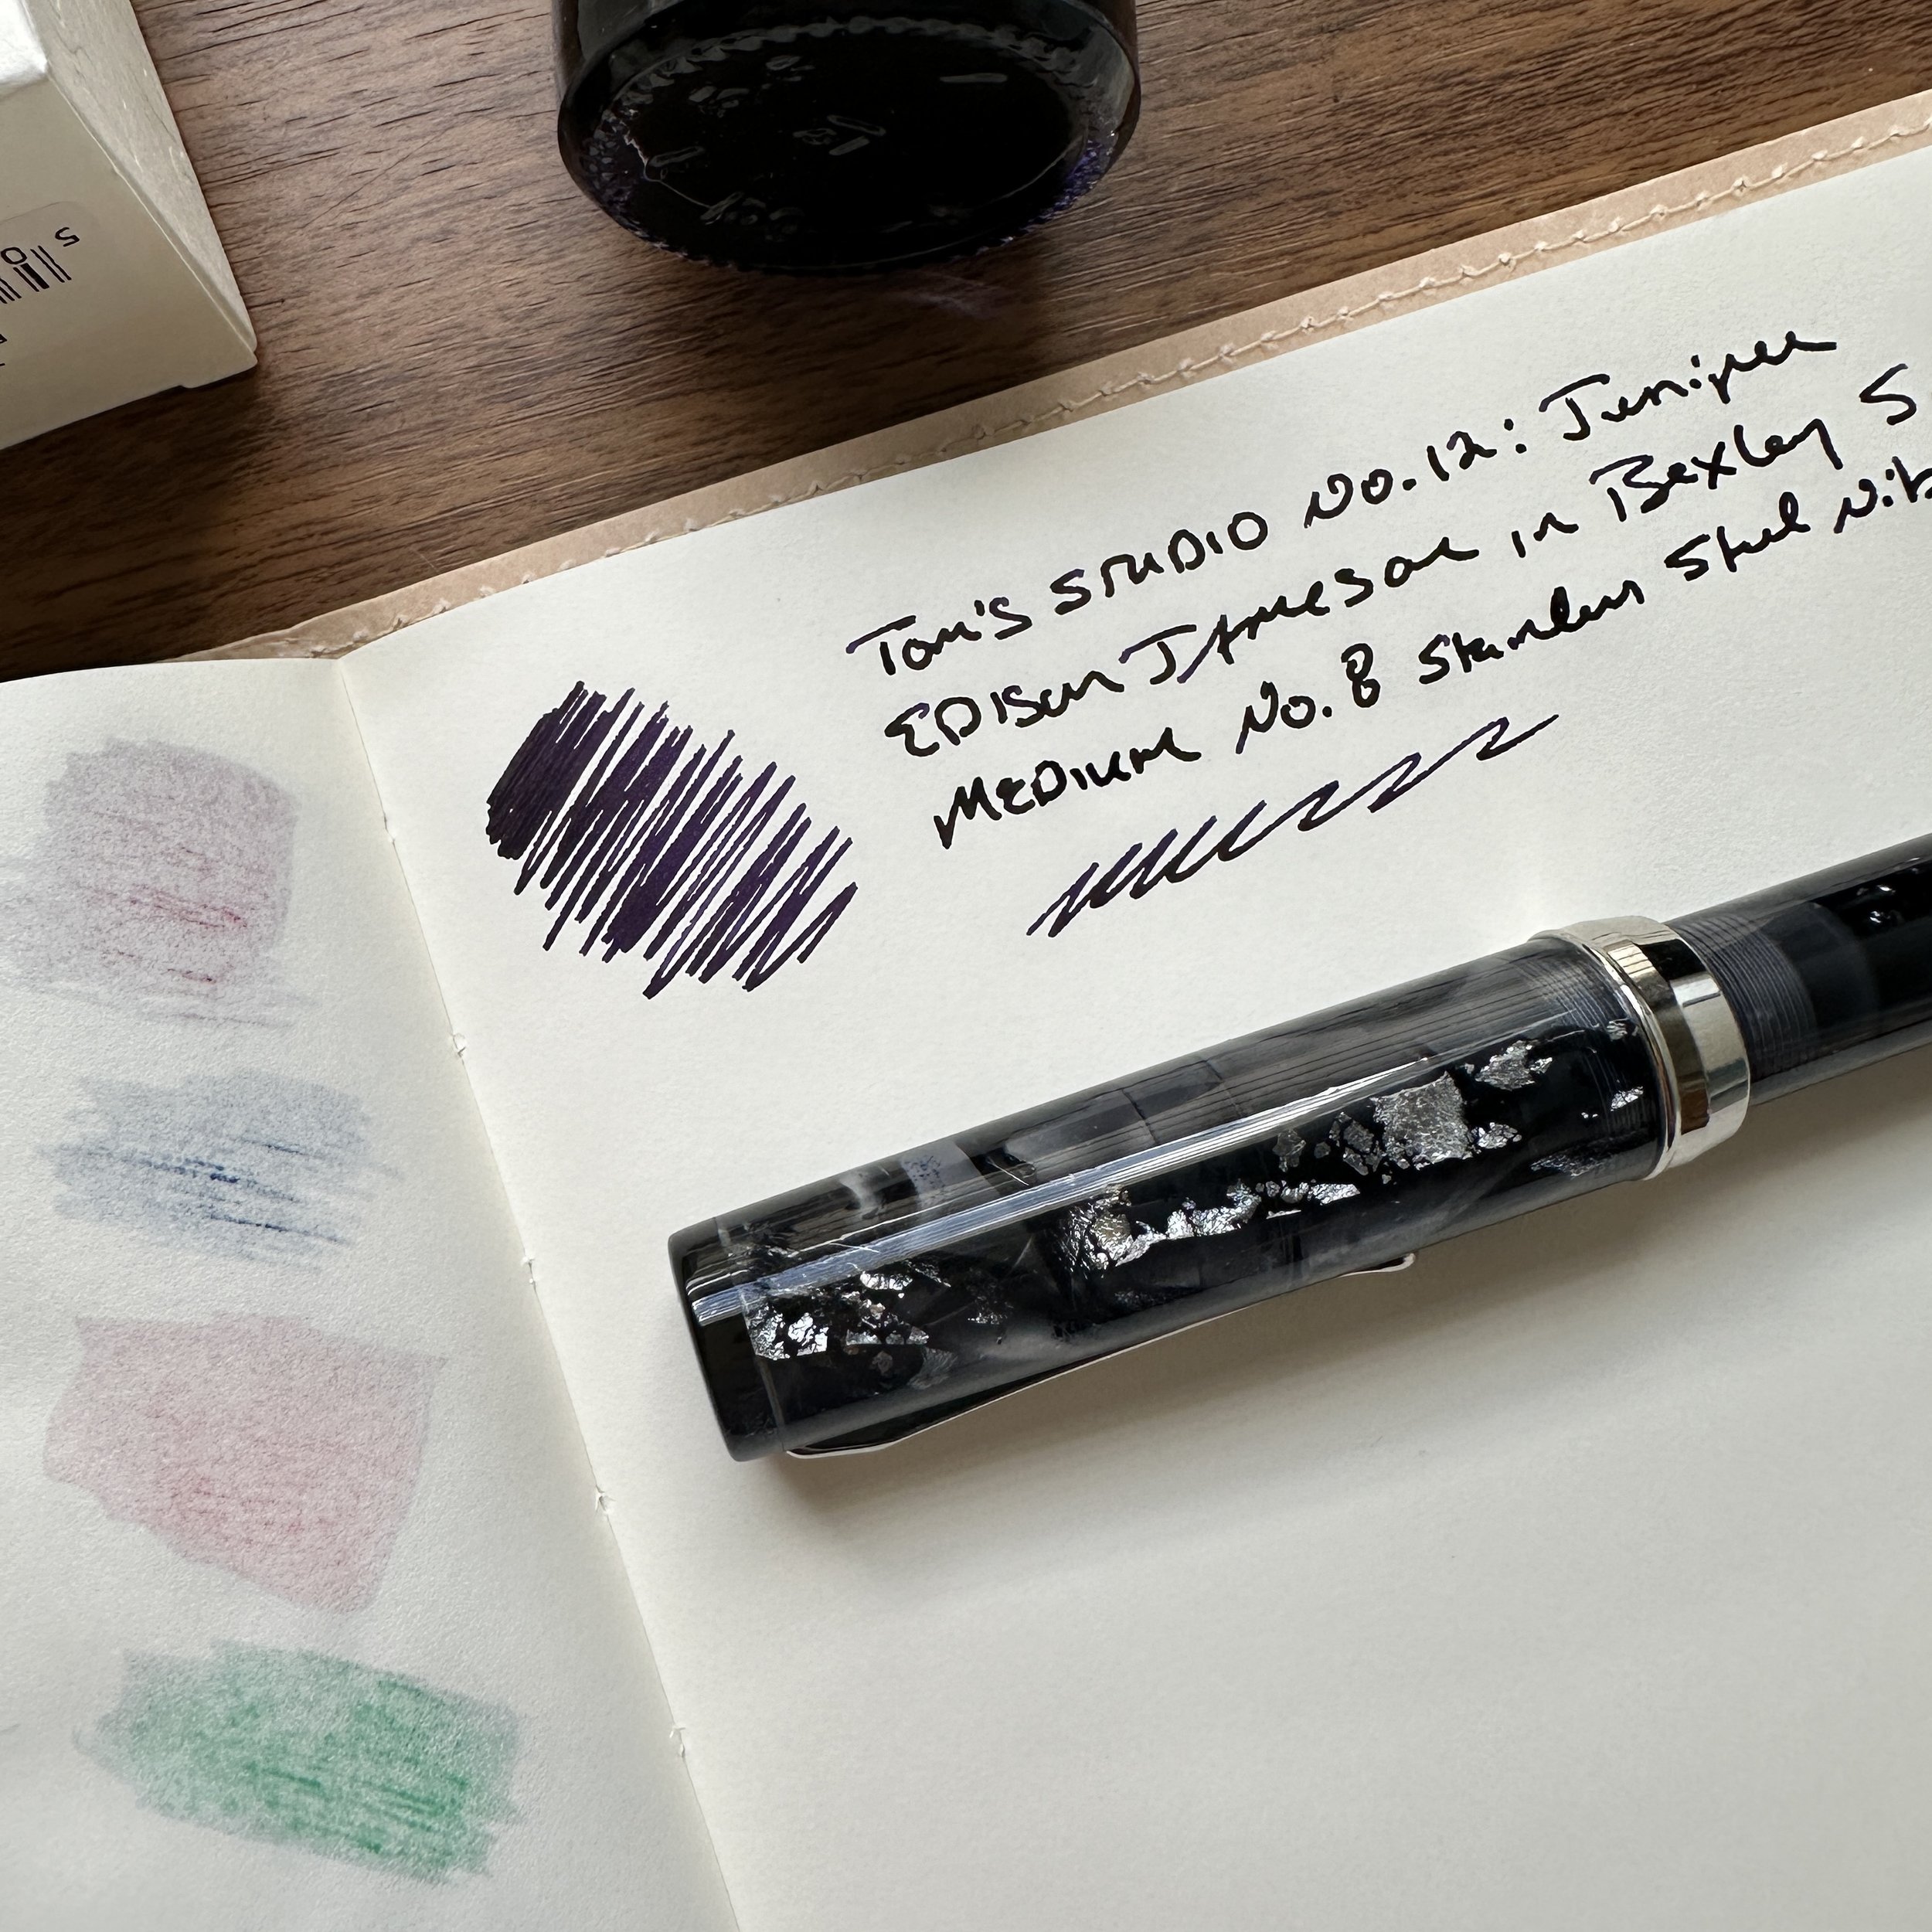 Tom's STUDIO No.12: Juniper
EDISON JAMESON in Bexley S
MEDIUM No.8 Stainless Steel Nib
5
0